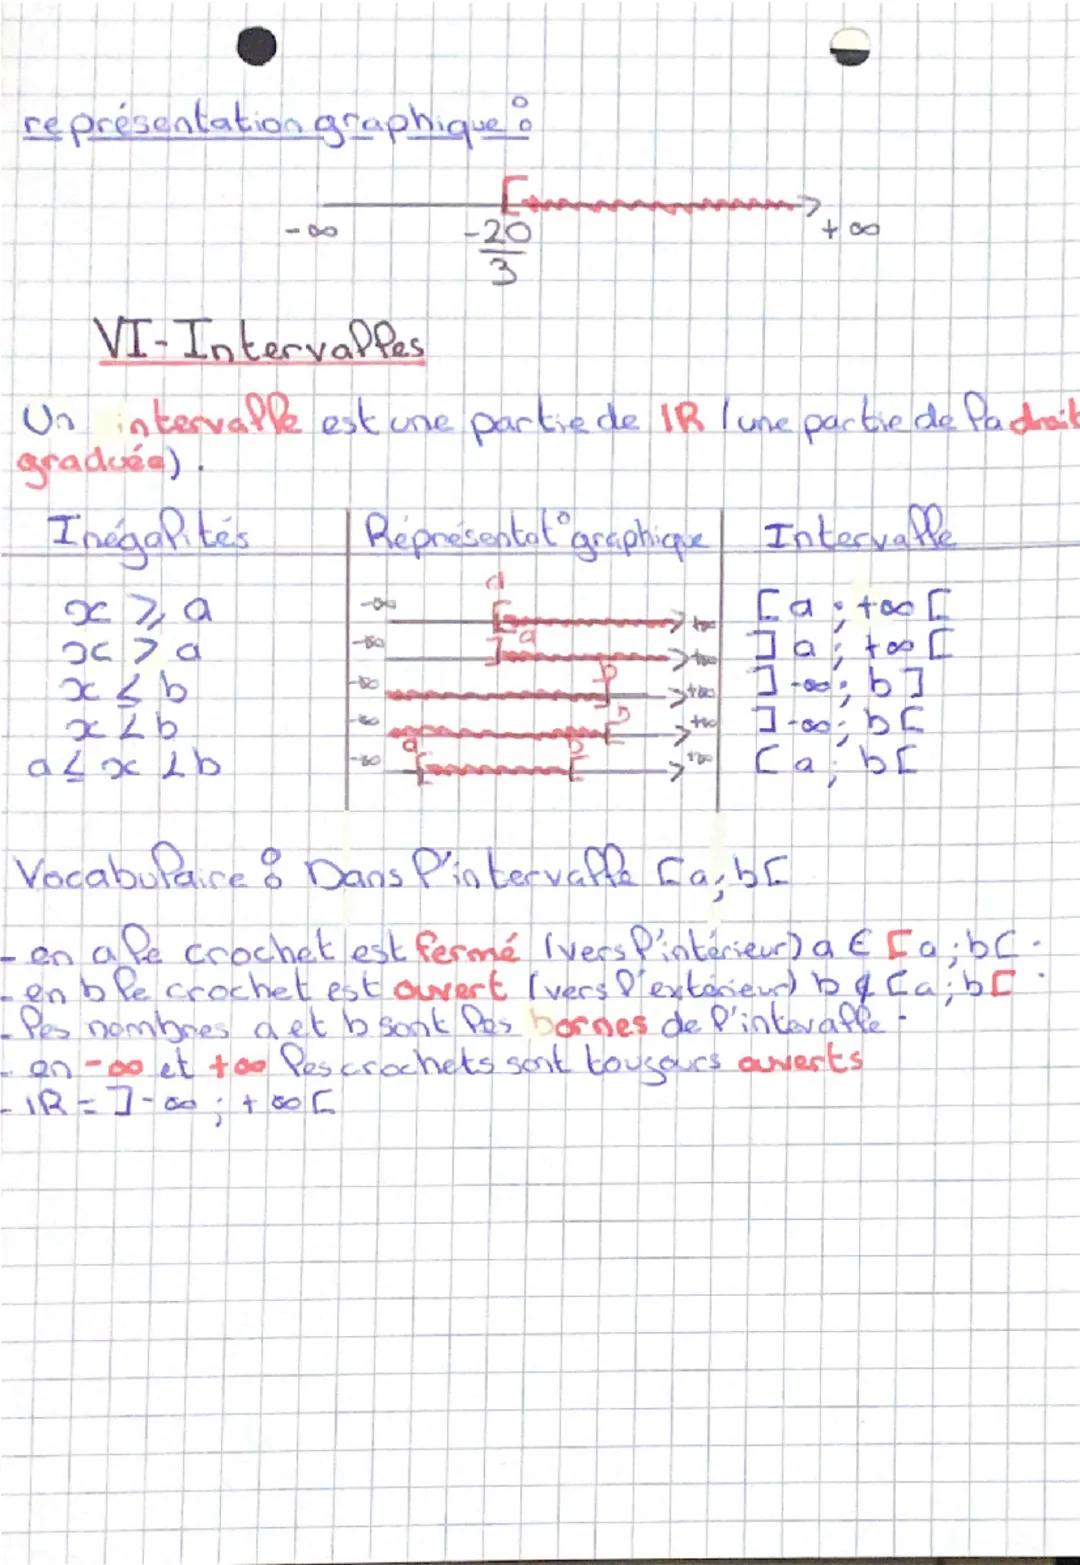 représentation graphique :
[
-∞ -20/3 +∞
VI- Intervalles
Un intervalle est une partie de IR (une partie de la droit
graduée).
Inégalités Représentat° graphique Intervalle
x ⩾ a -∞ a [ +∞ [a ; +∞[
x > a -∞ a ] +∞ ]a ; +∞[
x ≤ b -∞ b ] +∞ ]-∞ ; b]
x < b -∞ b [ +∞ ]-∞ ; b[
a ≤ x < b -∞ a [ b [ +∞ [a ; b[
Vocabulaire : Dans l'intervalle [a ; b[
- en a le crochet est fermé (vers l'intérieur) a ∈ [a ; b[.
- en b le crochet est ouvert (vers l'extérieur) b ∉ [a ; b[.
- les nombres a et b sont les bornes de l'intervalle.
- en -∞ et +∞ les crochets sont toujours ouverts
- IR = ]-∞ ; +∞[